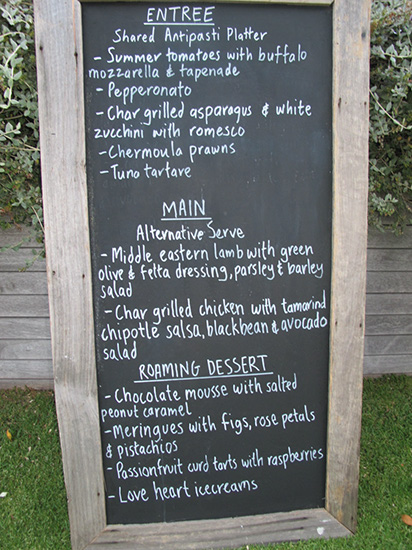 ENTREE
Shared Antipasti Platter
- Summer tomatoes with buffalo
mozzarella & tapenade
- Pepperonato
- Char grilled asparagus & white
zucchini with romesco
- Chermoula prawns
- Tuna tartare
MAIN
Alternative Serve
- Middle eastern lamb with green
olive & fetta dressing, parsley & barley
salad
- Char grilled chicken with tamarind
chipotle salsa, blackbean & avocado
salad
ROAMING DESSERT
- Chocolate mousse with salted
peanut caramel
- Meringues with figs, rose petals
& pistachios
- Passionfruit curd tarts with raspberries
- Love heart icecreams